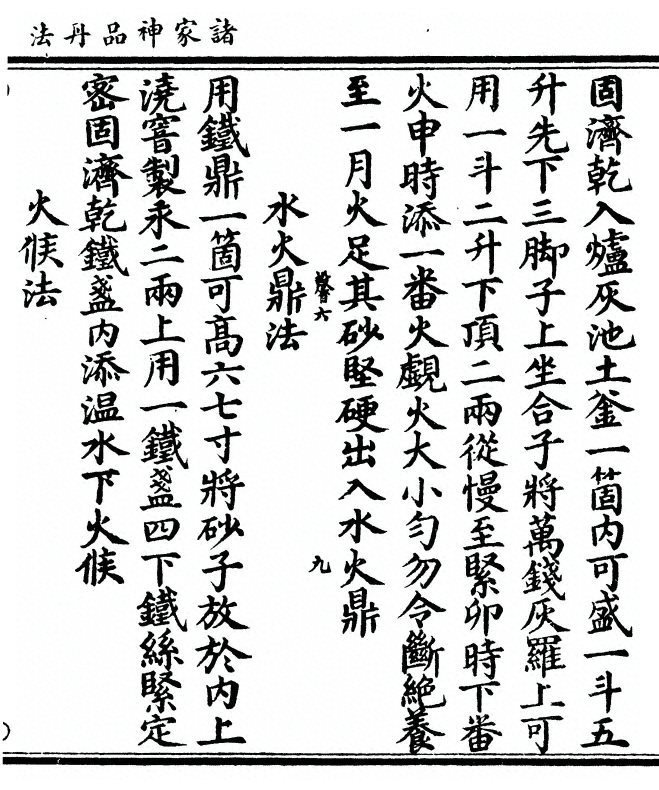 諸家神品丹法
固濟乾入爐灰池土釜一箇內可盛一斗五
升先下三脚子上坐合子將萬錢灰羅上可
用一斗二升下頂二兩從慢至緊卯時下番
火申時添一番火覷火大小勻勿令斷絕養
至一月火足其砂堅硬出入水火鼎
九
水火鼎法
用鐵鼎一箇可高六七寸將砂子放於內上
澆窨製汞二兩上用一鐵盞四下鐵絲緊定
密固濟乾鐵盞內添温水下火候
火候法